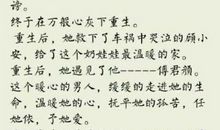 谤。
终于在万般心灰下重生。
重生后，她救下了车祸中哭泣的顾小
安，给了这个奶娃娃最温暖的家。
重生后，她遇见了他-----傅君颜。
这个暖心的男人，缓缓的走进她的生
命，温暖她的心，抚平她的孤苦，任
她依，予她爱。